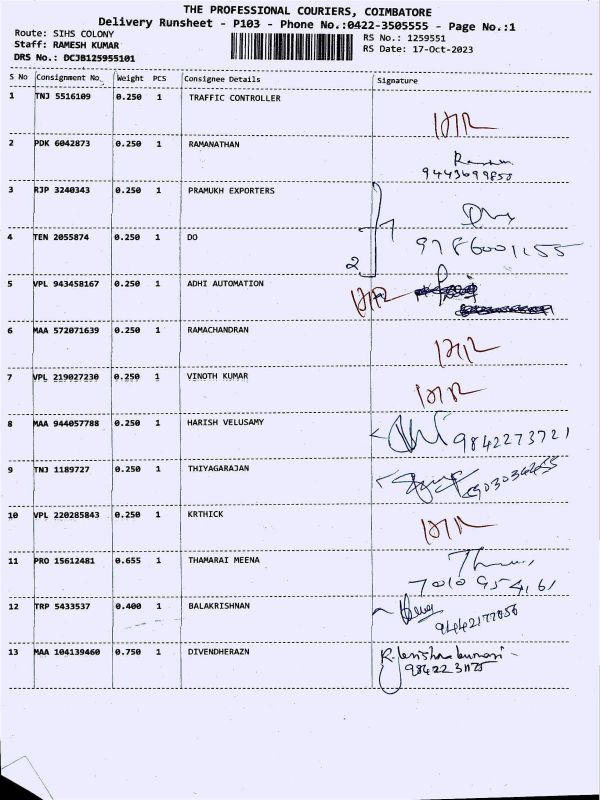 THE PROFESSIONAL COURIERS, COIMBATORE
Delivery Runsheet - P103 - Phone No.:0422-3505555 - Page No.:1
Route: SIHS COLONY
RS No.: 1259551
Staff: RAMESH KUMAR
RS Date: 17-Oct-2023
DRS No.: DCJB125955101
S No Consignment No. Weight PCS Consignee Details Signature
1 TNJ 5516109 0.250 1 TRAFFIC CONTROLLER
2 PDK 6042873 0.250 1 RAMANATHAN
3 RJP 3240343 0.250 1 PRAMUKH EXPORTERS
4 TEN 2055874 0.250 1 DO
2
5 VPL 943458167 0.250 1 ADHI AUTOMATION
6 MAA 572071639 0.250 1 RAMACHANDRAN
7 VPL 219027230 0.250 1 VINOTH KUMAR
8 MAA 944057788 0.250 1 HARISH VELUSAMY 9842273721
9 TNJ 1189727 0.250 1 THIYAGARAJAN
10 VPL 220285843 0.250 1 KRTHICK
11 PRO 15612481 0.655 1 THAMARAI MEENA
7010 954161
12 TRP 5433537 0.400 1 BALAKRISHNAN
13 MAA 104139460 0.750 1 DIVENDHERAZN